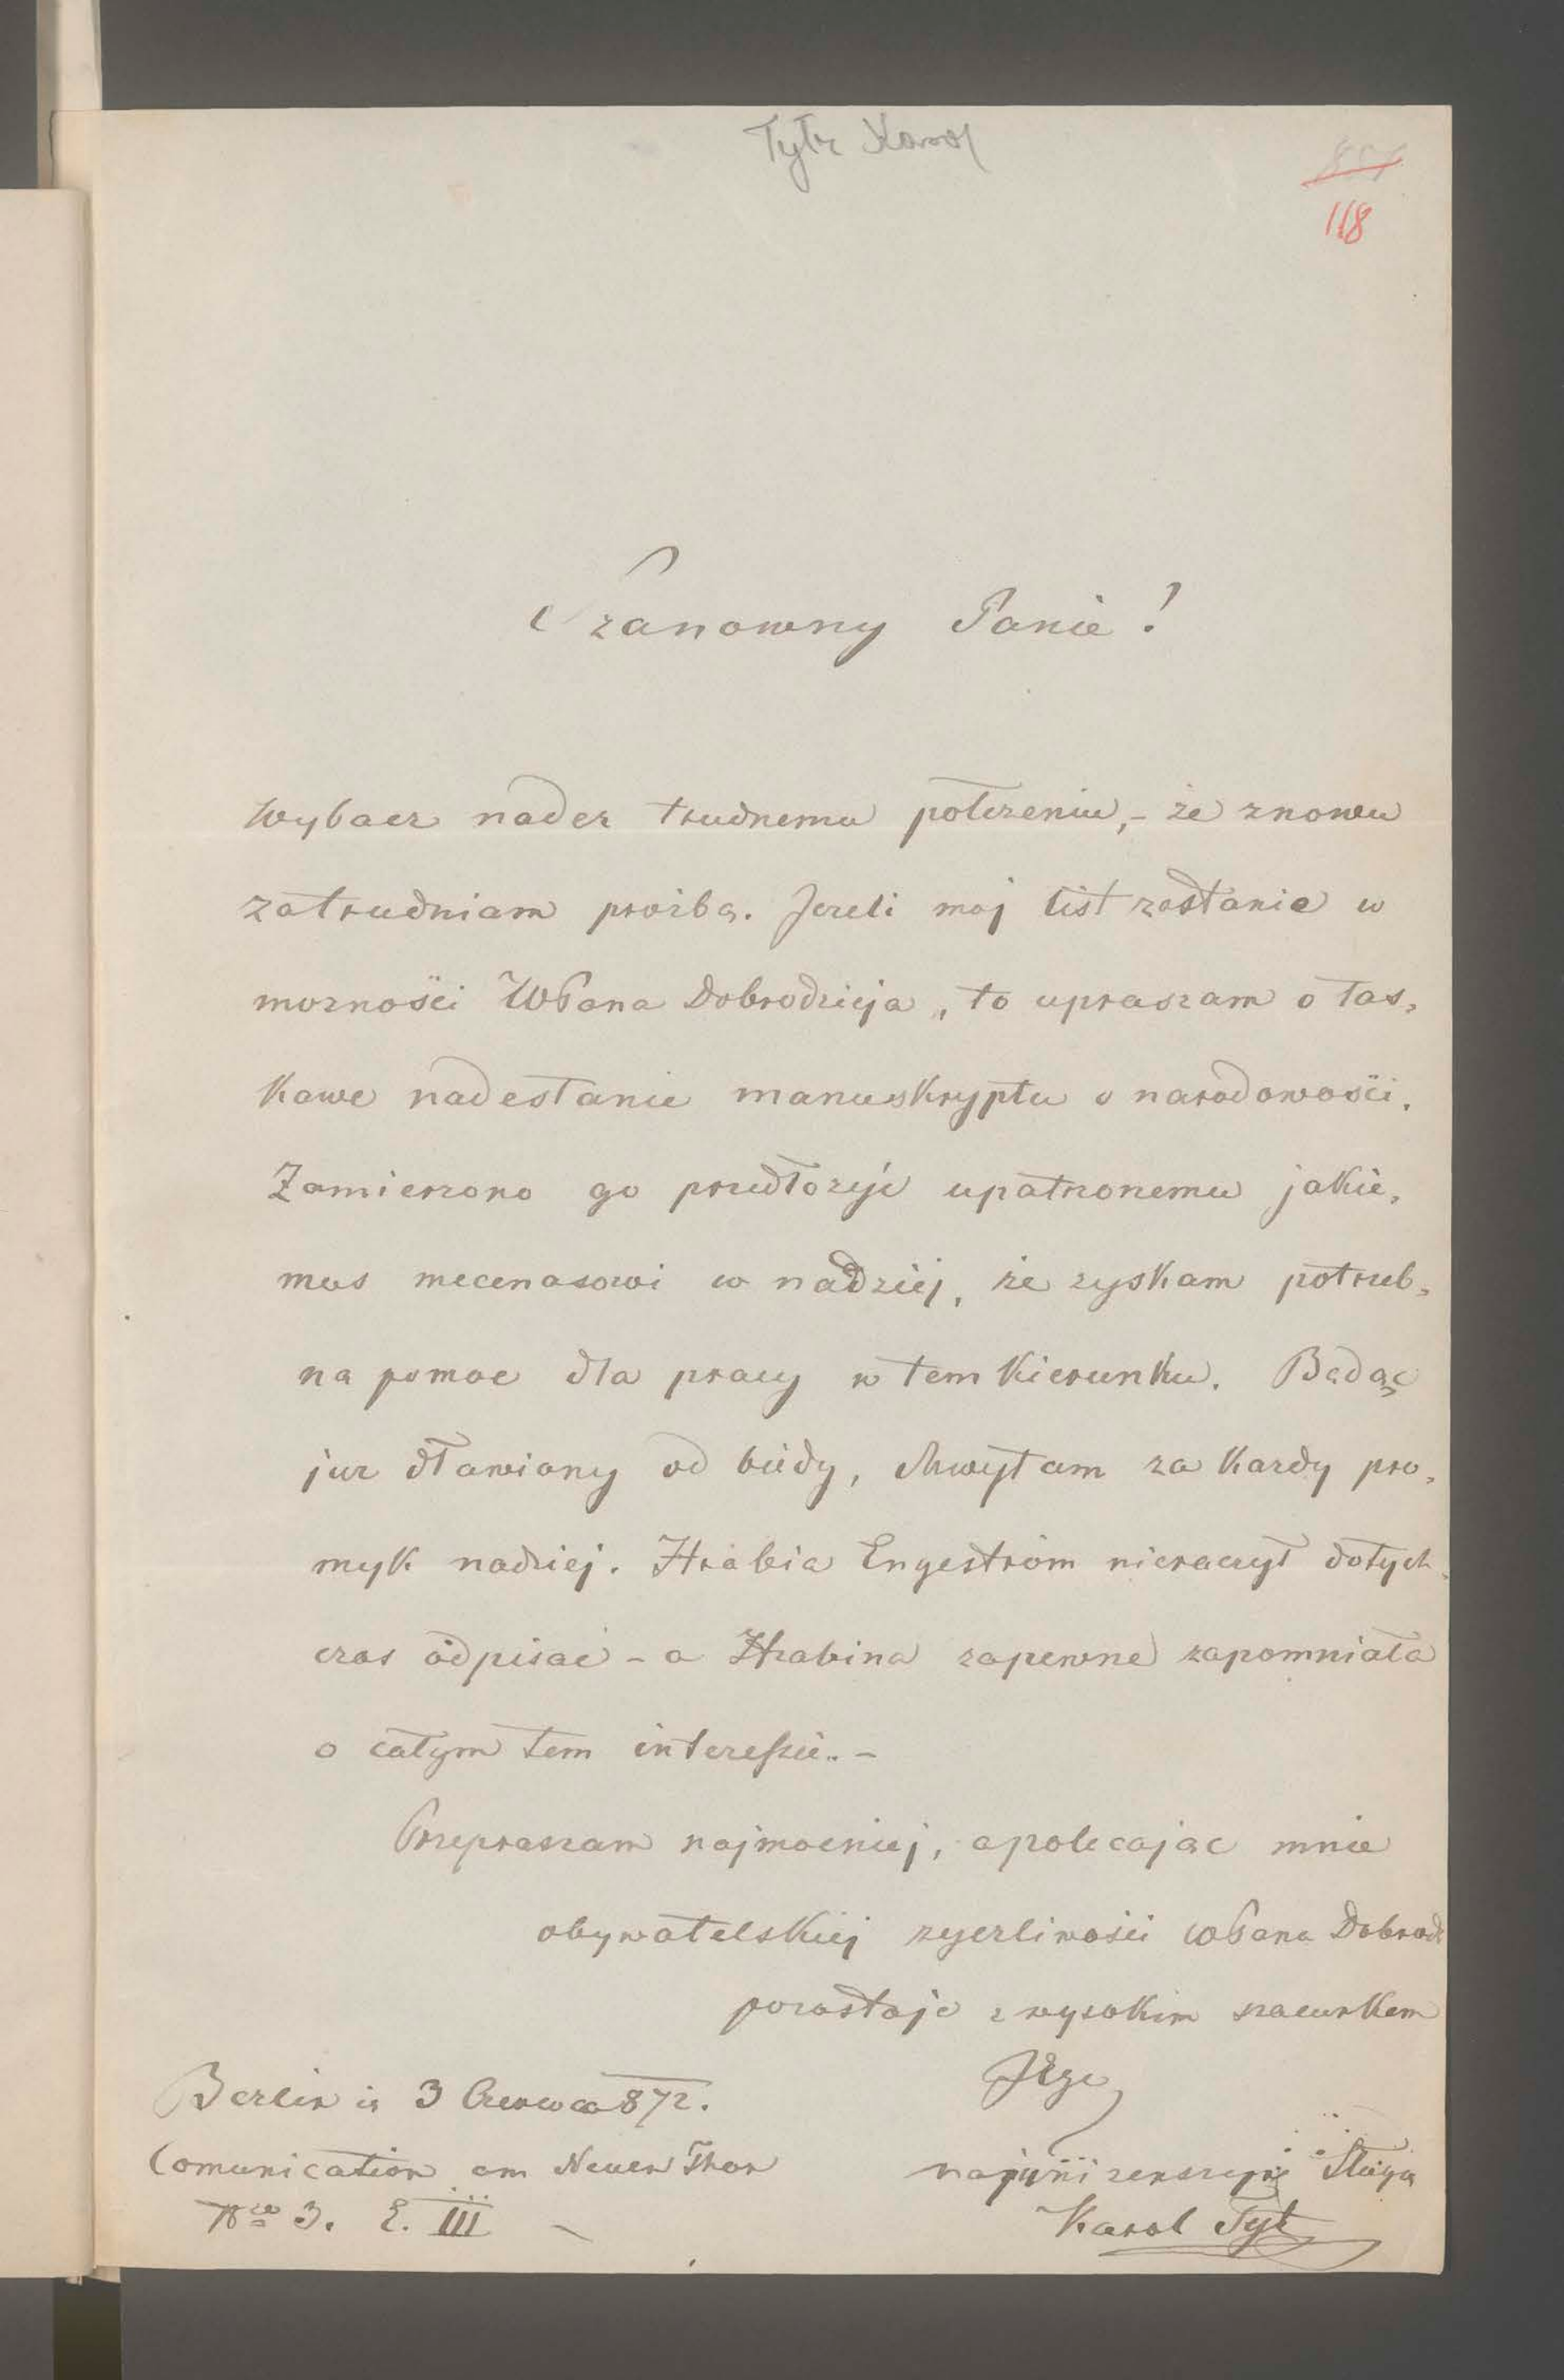 Tytz Karol
118
Szanowny Panie!
Wybacz nader trudnemu położeniu,- że znowu
zatrudniam prośbą. Jeżeli mój list zastanie w
możności WPana Dobrodzieja, to upraszam o łas,
kawe nadesłanie manuskryptu o narodowości.
Zamierzono go przedłożyć upatrzonemu jakie,
mus mecenasowi w nadziej, że zyskam potrzeb,
na pomoc dla pracy w tem kierunku. Będąc
juz dławiony od biédy, chwytam za każdy pro,
myk nadziej. Hrabia Engeström nieraczył dotych
czas odpisać - a Hrabina zapewne zapomniała
o całym tem interessie.. -
Przepraszam najmocniej, a polecając mnie
obywatelskiej życzliwości WPana Dobrodz
pozostaję z wysokim szacunkem
Jego
najuniżenszejszy Sługa
Karol Tyt
Berlin is 3 Czerwca 872.
Comunication am Neuen Thor
Nro 3. E. III